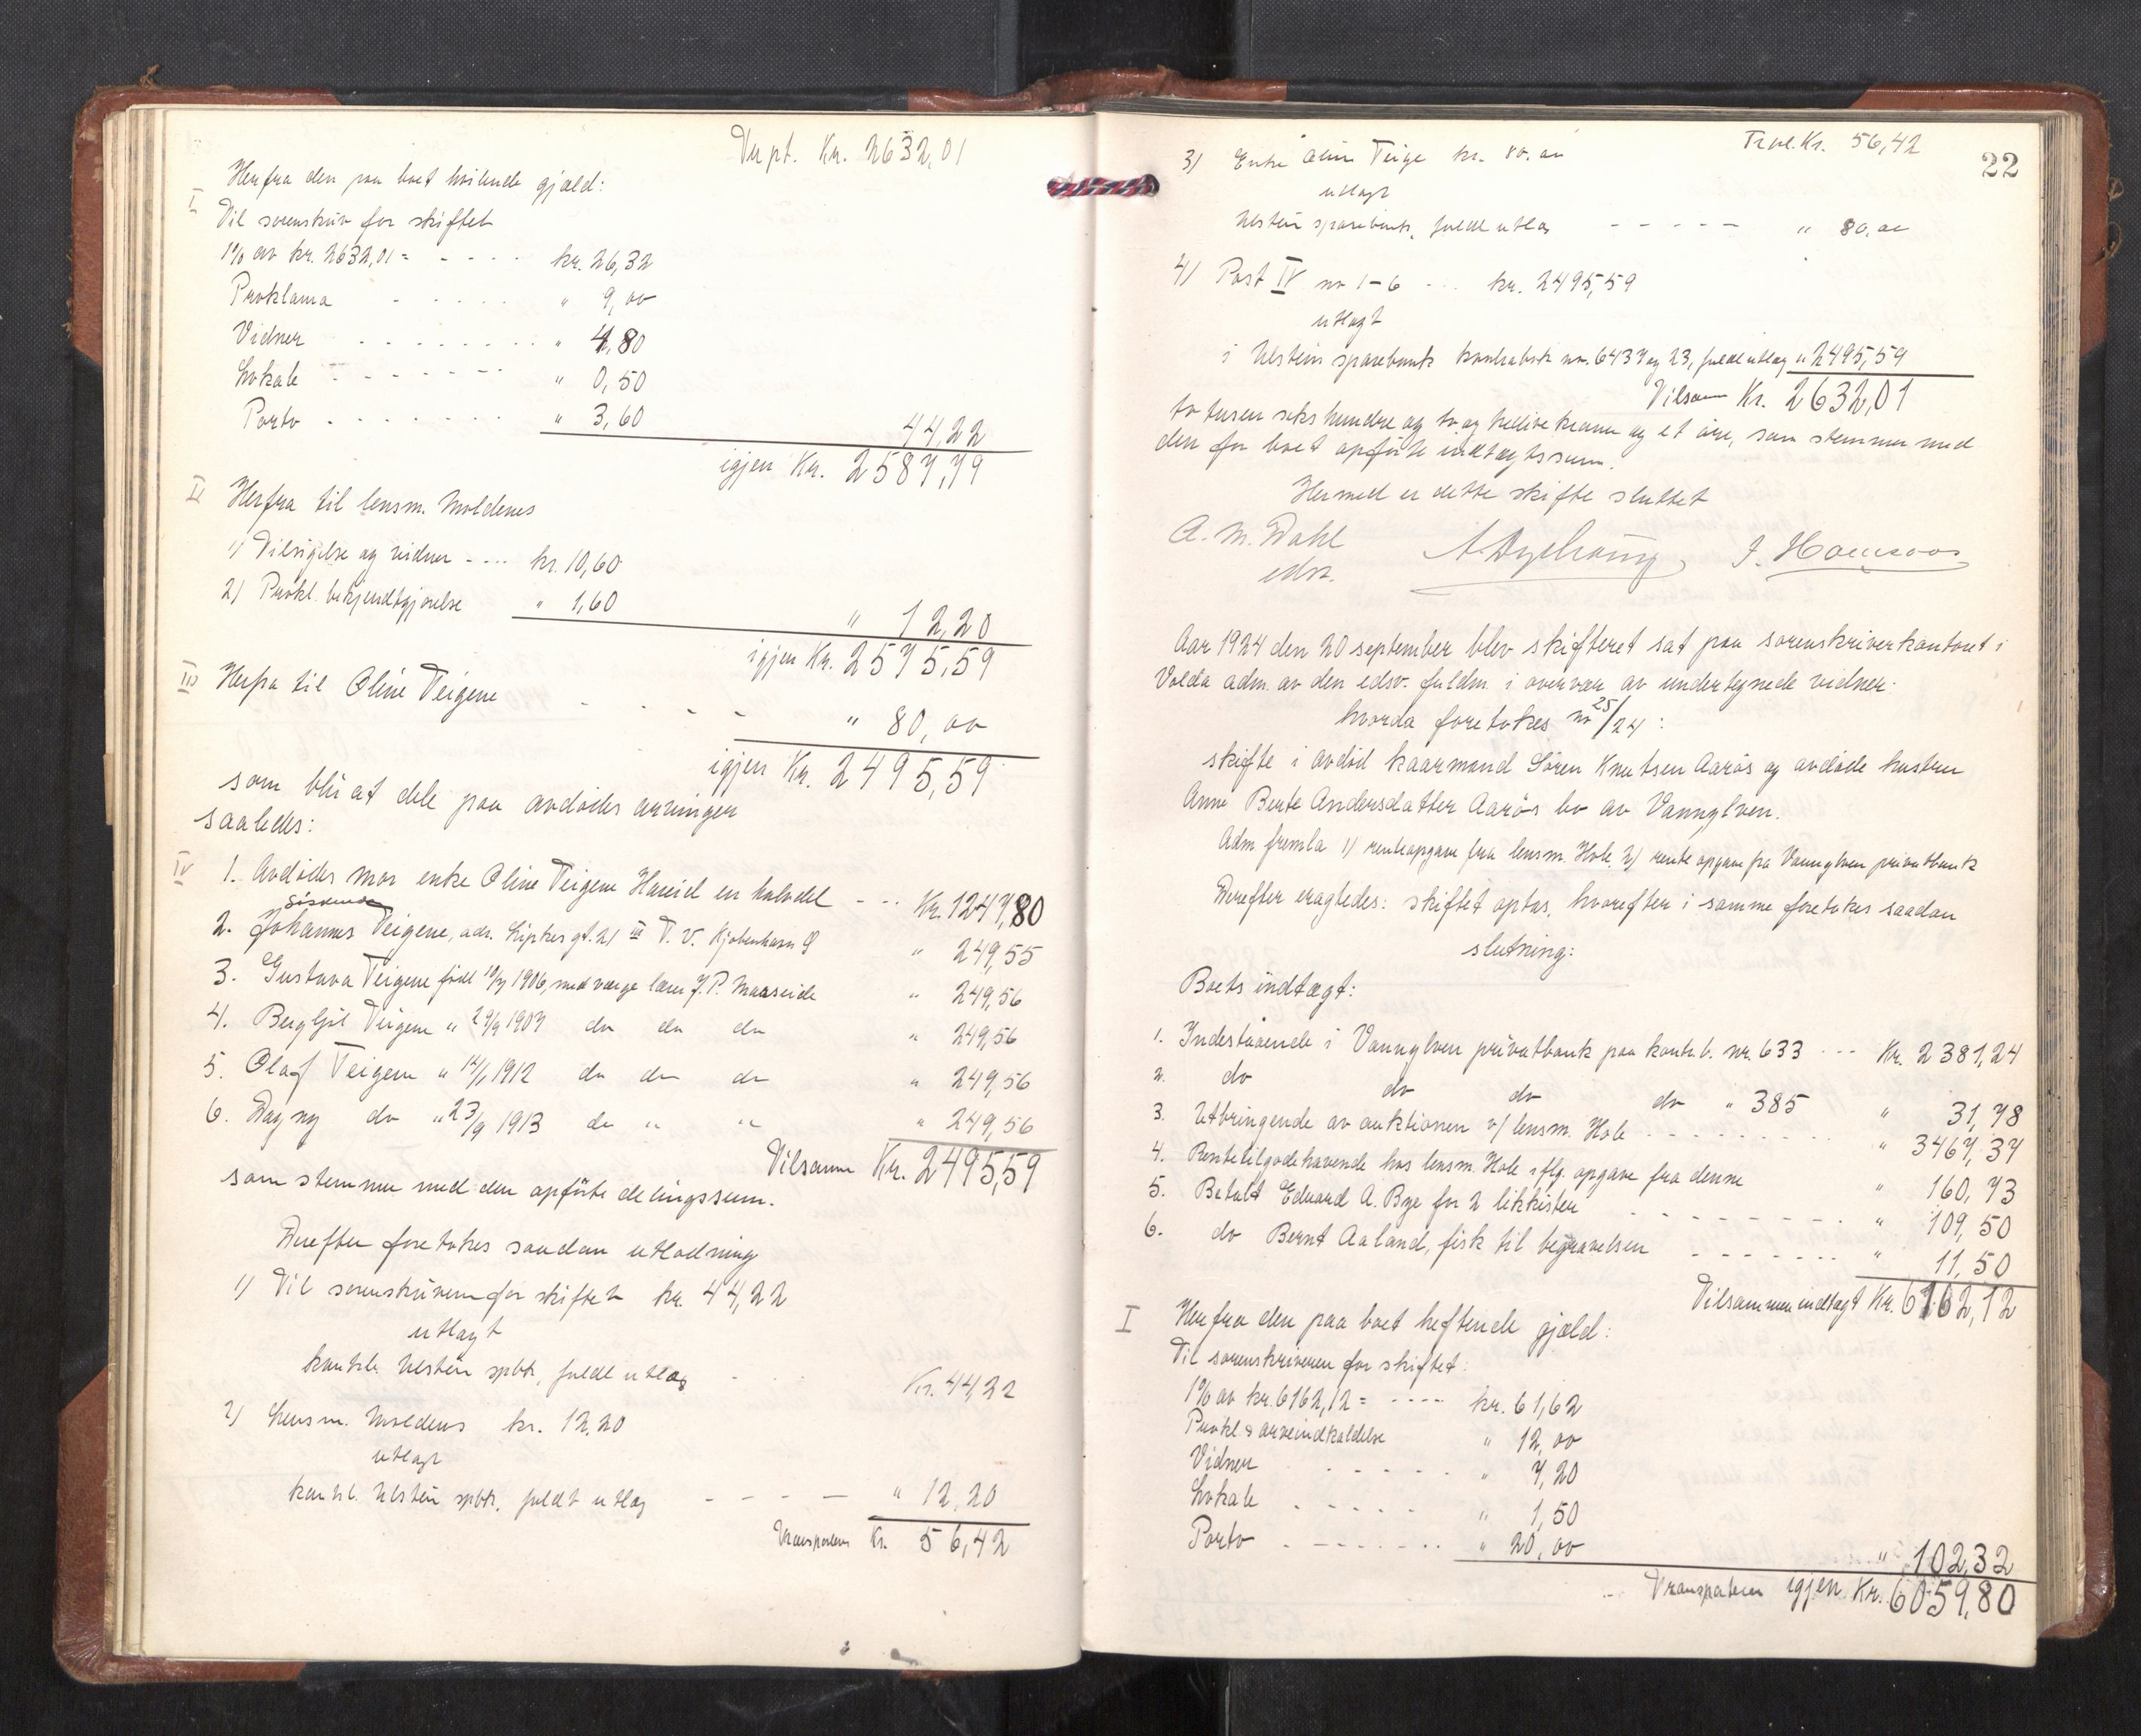 Trpt. Kr. 2632,01
I Herfra den paa boet hvilende gjæld:
Til sorenskriv for skiftet
1% av kr. 2632,01 = - - - - kr. 26,32
Proklama - - - - - " 9,00
Vidner - - - - - - - - " 4,80
Lokale - - - - - - - " 0,50
Porto - - - - - - - " 3,60
44,22
igjen Kr. 2587,79
II Herfra til lensm. Moldenes
1) Tilsigelse og vidner - - - - kr. 10,60
2) Prokl. bekjendtgjørelse " 1,60
" 12,20
igjen Kr. 2575,59
III Herfra til Oline Teigene - - - - " 80,00
igjen Kr. 2495,59
som blir at dele paa avdødes arvinger
saaledes:
IV 1. Avdødes mor enke Oline Teigene Hareid en halvdel - - - Kr. 1247,80
Søskende
2. Johannes Teigene, adr. gt. 21 III T. V. Kjøbenhavn " 249,55
3. Gustava Teigene født 19/7 1906, med værge lærer J. P. Maaseide " 249,56
4. Bergljot Teigene " 29/9 1907 do do do " 249,56
5. Olaf Teigene " 14/1 1912 do do do " 249,56
6. Dagny do " 23/9 1913 do " " " 249,56
Tilsamm Kr. 2495,59
som stemmer med den opførte delingssum.
Derefter foretokes saadan utlodning
1) Til sorenskriveren for skiftet kr. 44,22
utlagt
kontrb. Ulstein spbk, fuldt utlæg - - - Kr. 44,22
2) Lensm. Moldenes kr. 12,20
utlagt
kontrb. Ulstein spbk. fuldt utlæg - - - - " 12,20
Transporteres Kr. 56,42
22
Trpt. Kr. 56,42
3) Enke Oline Teige kr. 80,00
utlagt
Ulstein sparebank, fuldt utlæg - - - - - " 80,00
4) Post IV no 1-6 - - - kr. 2495,59
utlagt
i Ulstein sparebank kontrabok no. 6437 og 23, fuldt utlæg " 2495,59
Tilsam Kr. 2632,01
to tusen seks hundre og to og trettive kroner og et øre, som stemmer med
den for boet opførte indtægtssum.
Hermed er dette skifte sluttet
A. M. Dahl
edsv.
Aar 1924 den 20 september blev skifteret sat paa sorenskriverkontoret i
Volda adm. av den edsv. fuldm. i overvær av undertegnede vidner:
hvorda foretokes no 25/24:
skifte i avdød kaarmand Sören Knutsen Aarös og avdøde hustru
Anne Berte Andersdatter Aarös bo av Vannylven.
Adm fremla 1) renteopgave fra lensm. Hole 2) rente opgave fra Vannylven privatbank
Derefter eragtedes: skiftet optas, hvorefter i samme foretokes saadan
slutning:
Boets indtægt:
1. Indestaaende i Vannylven privatbank paa kontrb. nr. 633 - - - Kr. 2381,24
2. do do do do " 385 " 31,78
3. Utbringende av auktionen v/ lensm. Hole - - - - - - - - " 3467,37
4. Rentetilgodehavende hos lensm. Hole iflg. opgave fra denne " 160,73
5. Betalt Edvard A. Bye for 2 likkister - - - - - - - - " 109,50
6. do Bernt Aaland, fisk til begravelsen - - - - - - - " 11,50
Tilsammen indtægt Kr. 6162,12
I Herfra den paa boet heftende gjæld:
Til sorenskriveren for skiftet:
1% av kr. 6162,12 = - - - - kr. 61,62
Prokl & arveindkaldelse " 12,00
Vidner - - - - - " 7,20
Lokale - - - - - " 1,50
Porto - - - - - - - " 20,00
" 102,32
Transporteres igjen Kr. 6059,80